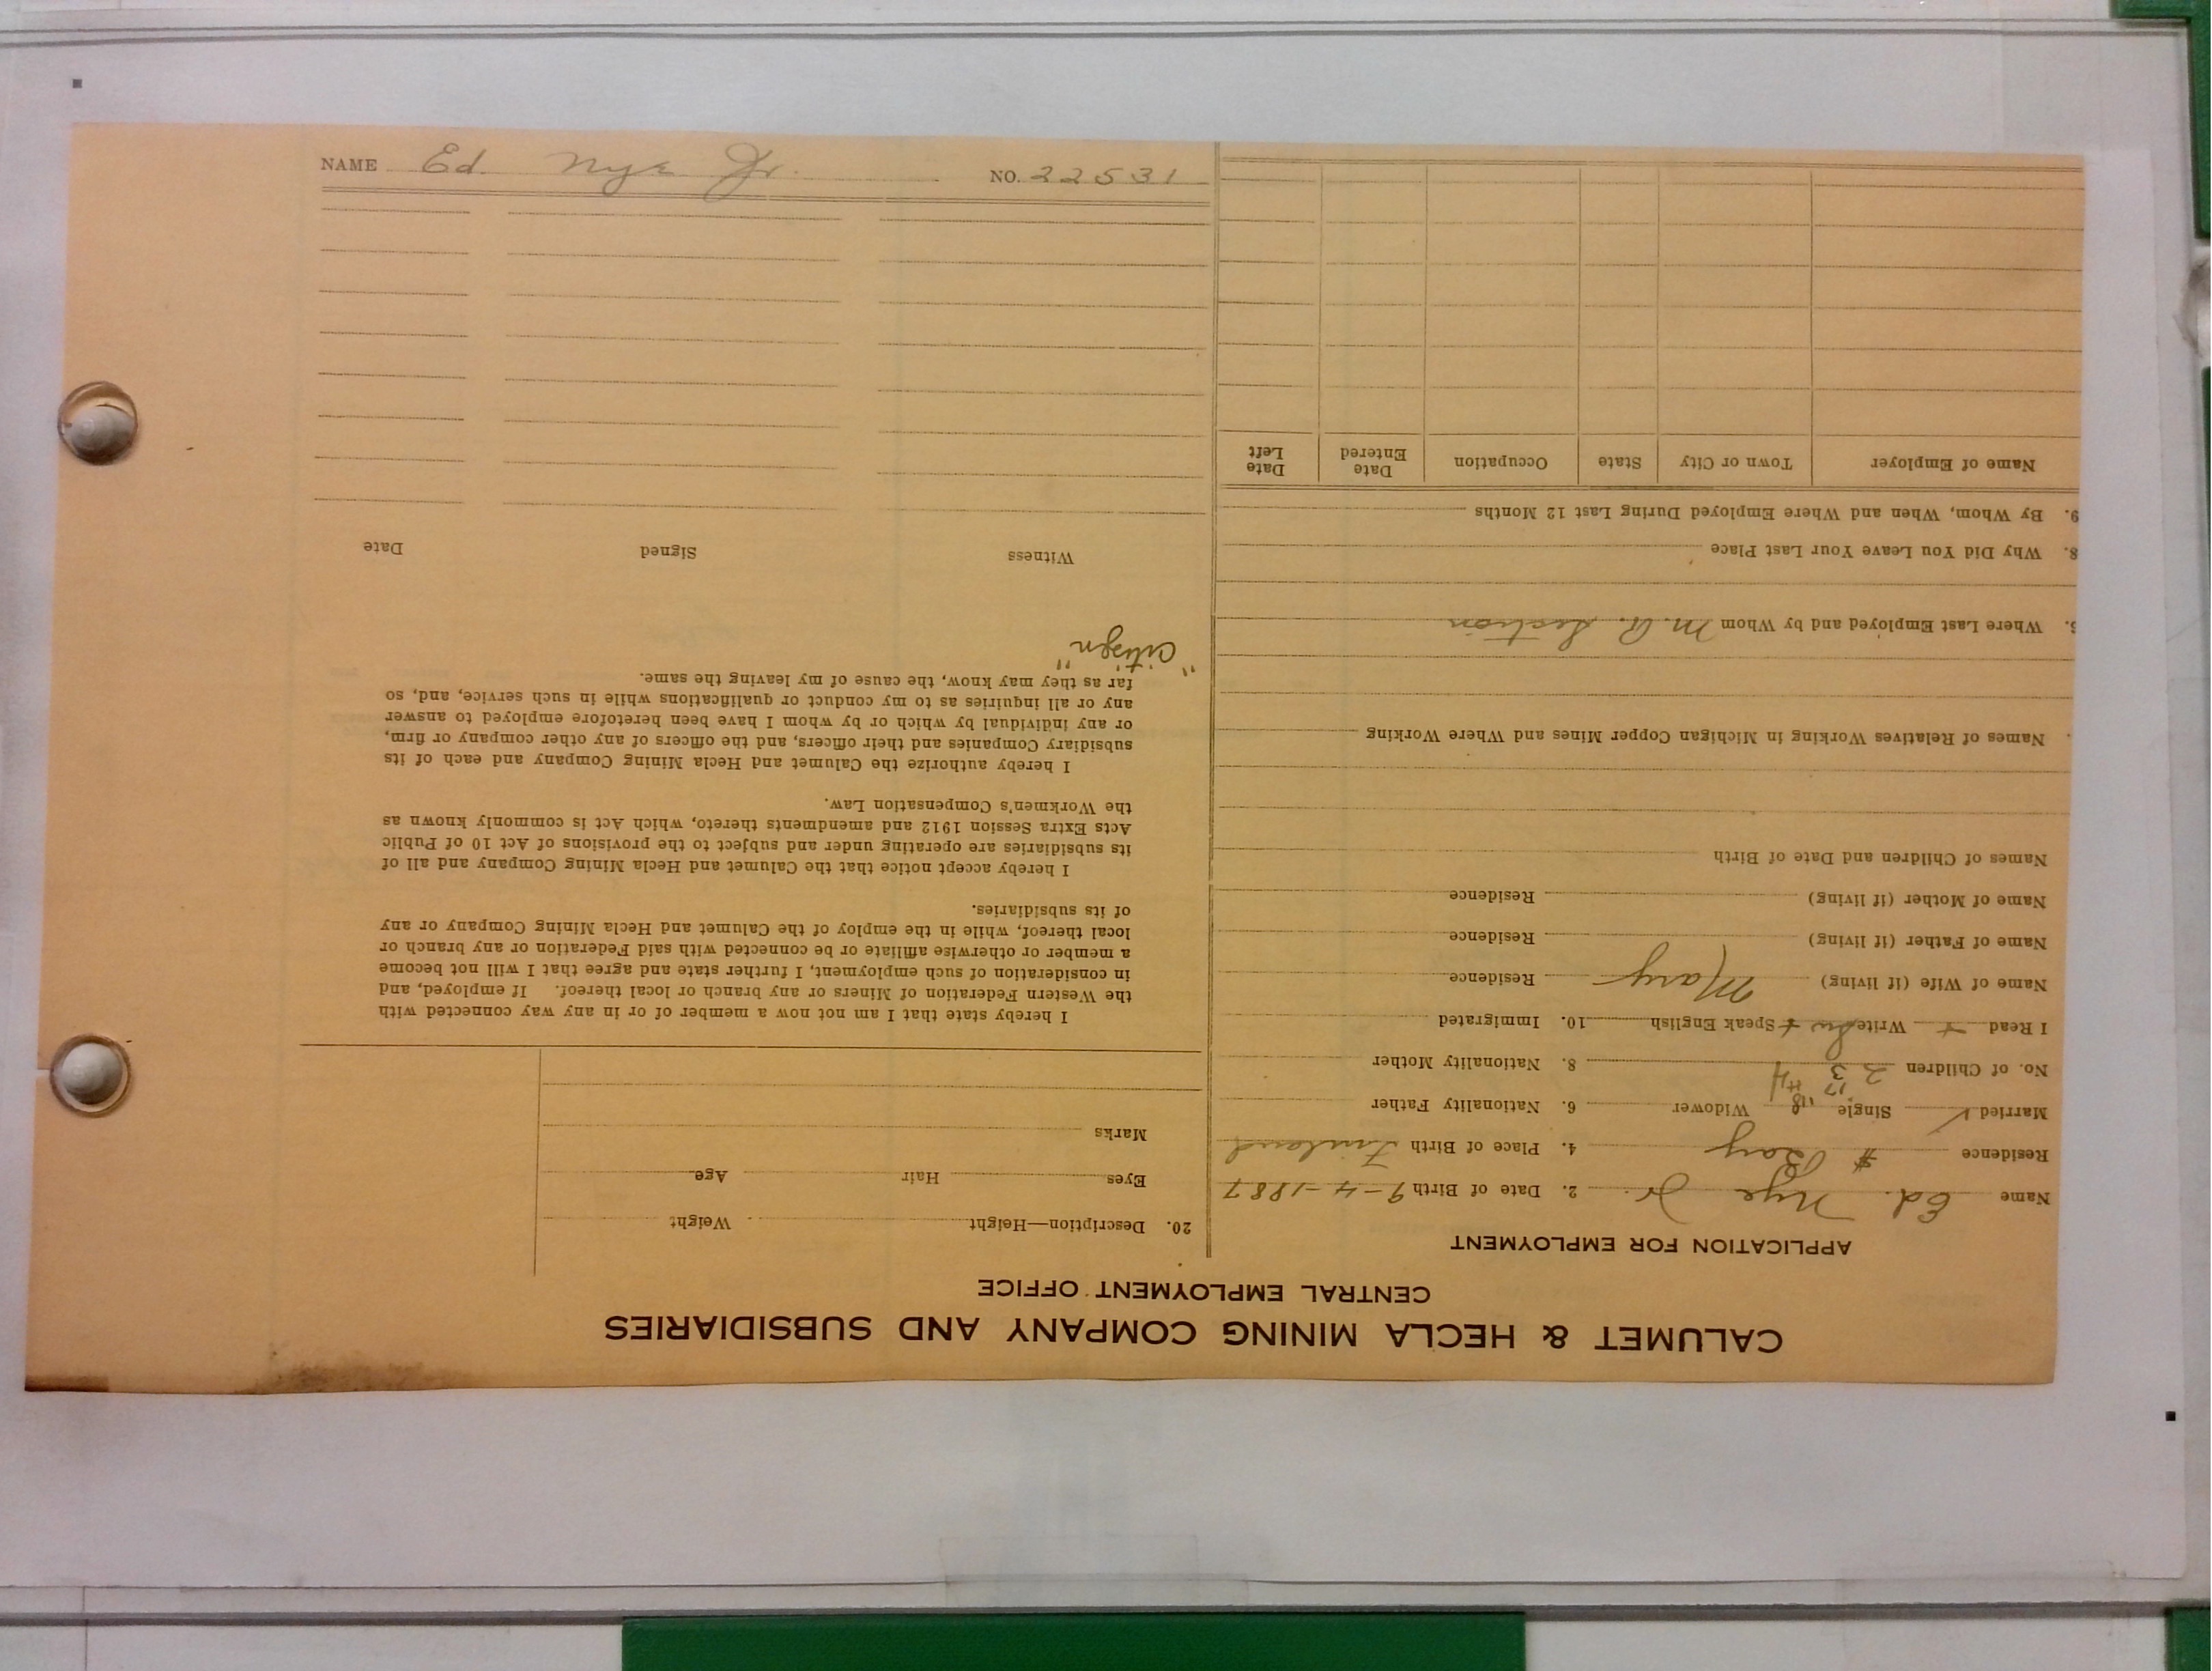 CALUMET & HECLA MINING COMPANY AND SUBSIDIARIES
CENTRAL EMPLOYMENT OFFICE
APPLICATION FOR EMPLOYMENT
Name Ed. Nye Jr. 2. Date of Birth 9-4-1887
Residence # Bay 4. Place of Birth Finland
Married ✓ Single "18 Widower 6. Nationality Father
No. of Children 2 3 17 H4 8. Nationality Mother
I Read + Write Speak English + 10. Immigrated
Name of Wife (if living) Mary Residence
Name of Father (if living) Residence
Name of Mother (if living) Residence
Names of Children and Date of Birth
Names of Relatives Working in Michigan Copper Mines and Where Working
Where Last Employed and by Whom M. A. Section
8. Why Did You Leave Your Last Place
9. By Whom, When and Where Employed During Last 12 Months
Name of Employer Town or City State Occupation Date Entered Date Left
20. Description—Height Weight
Eyes Hair Age
Marks
I hereby state that I am not now a member of or in any way connected with
the Western Federation of Miners or any branch or local thereof. If employed, and
in consideration of such employment, I further state and agree that I will not become
a member or otherwise affiliate or be connected with said Federation or any branch or
local thereof, while in the employ of the Calumet and Hecla Mining Company or any
of its subsidiaries.
I hereby accept notice that the Calumet and Hecla Mining Company and all of
its subsidiaries are operating under and subject to the provisions of Act 10 of Public
Acts Extra Session 1912 and amendments thereto, which Act is commonly known as
the Workmen's Compensation Law.
I hereby authorize the Calumet and Hecla Mining Company and each of its
subsidiary Companies and their officers, and the officers of any other company or firm,
or any individual by which or by whom I have been heretofore employed to answer
any or all inquiries as to my conduct or qualifications while in such service, and, so
far as they may know, the cause of my leaving the same.
"Citizen"
Witness Signed Date
NAME Ed. Nye Jr. NO. 22531